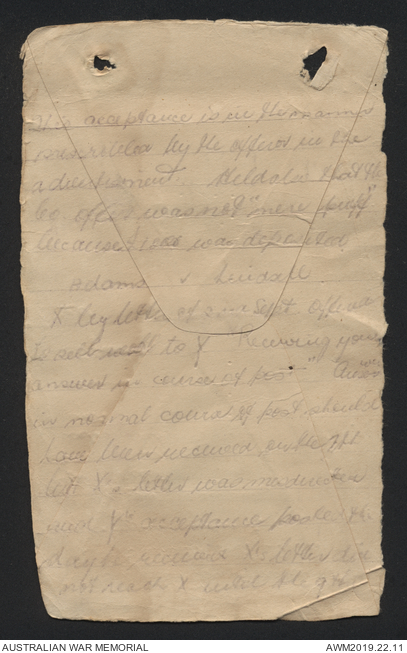 acceptance is in the manner
by the offeror in the
advertisement. Held also that the
Co. offer was not "mere puff"
because 1000 was deposited
Adams v Lindsell
X by letter of 2nd Sept. offered
to sell wool to Y "Receiving your
answer in course of post" Answer
in normal course of post should
have been received on the 7th
but X's letter was misdirected
and Y's acceptance posted the
day he received X's letter did
not reach X until the 9th
AUSTRALIAN WAR MEMORIAL
AWM2019.22.11